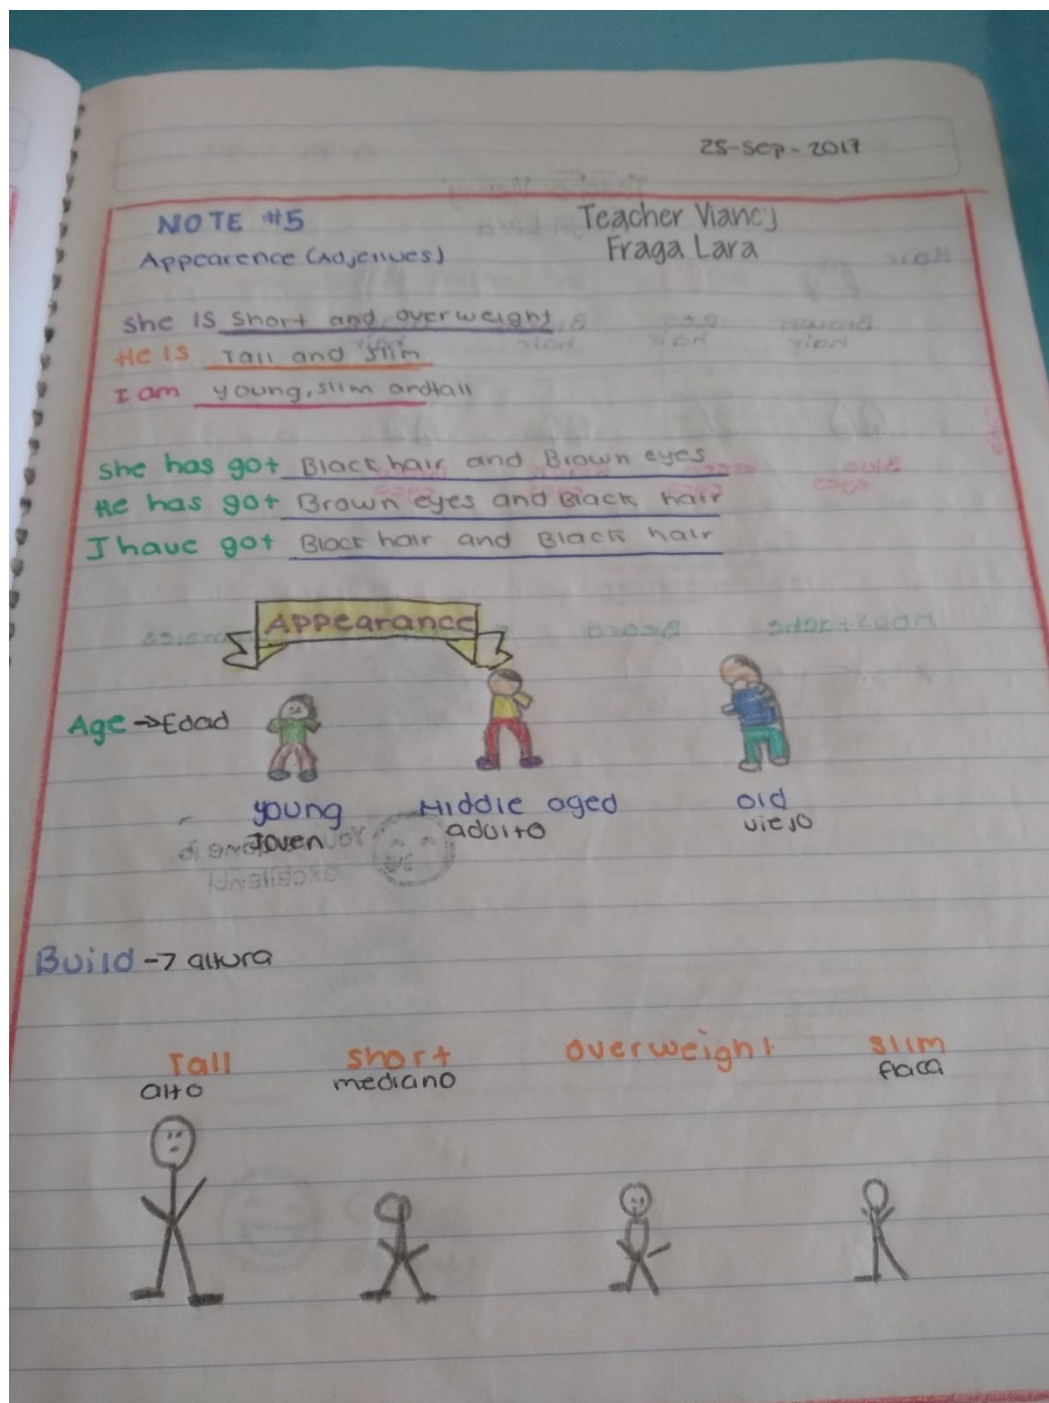 25-sep-2017
NOTE #5
Teacher Viancy
Fraga Lara
Appearence (Adjetives)
she IS short and overweight
He is Tall and slim
I am young, slim and tall
she has got Black hair and Brown eyes
He has got Brown eyes and Black hair
I have got Black hair and Black hair
Appearance
Age → Edad
young Middle aged old
Joven adulto viejo
Build → altura
Tall short overweight slim
alto mediano flaca